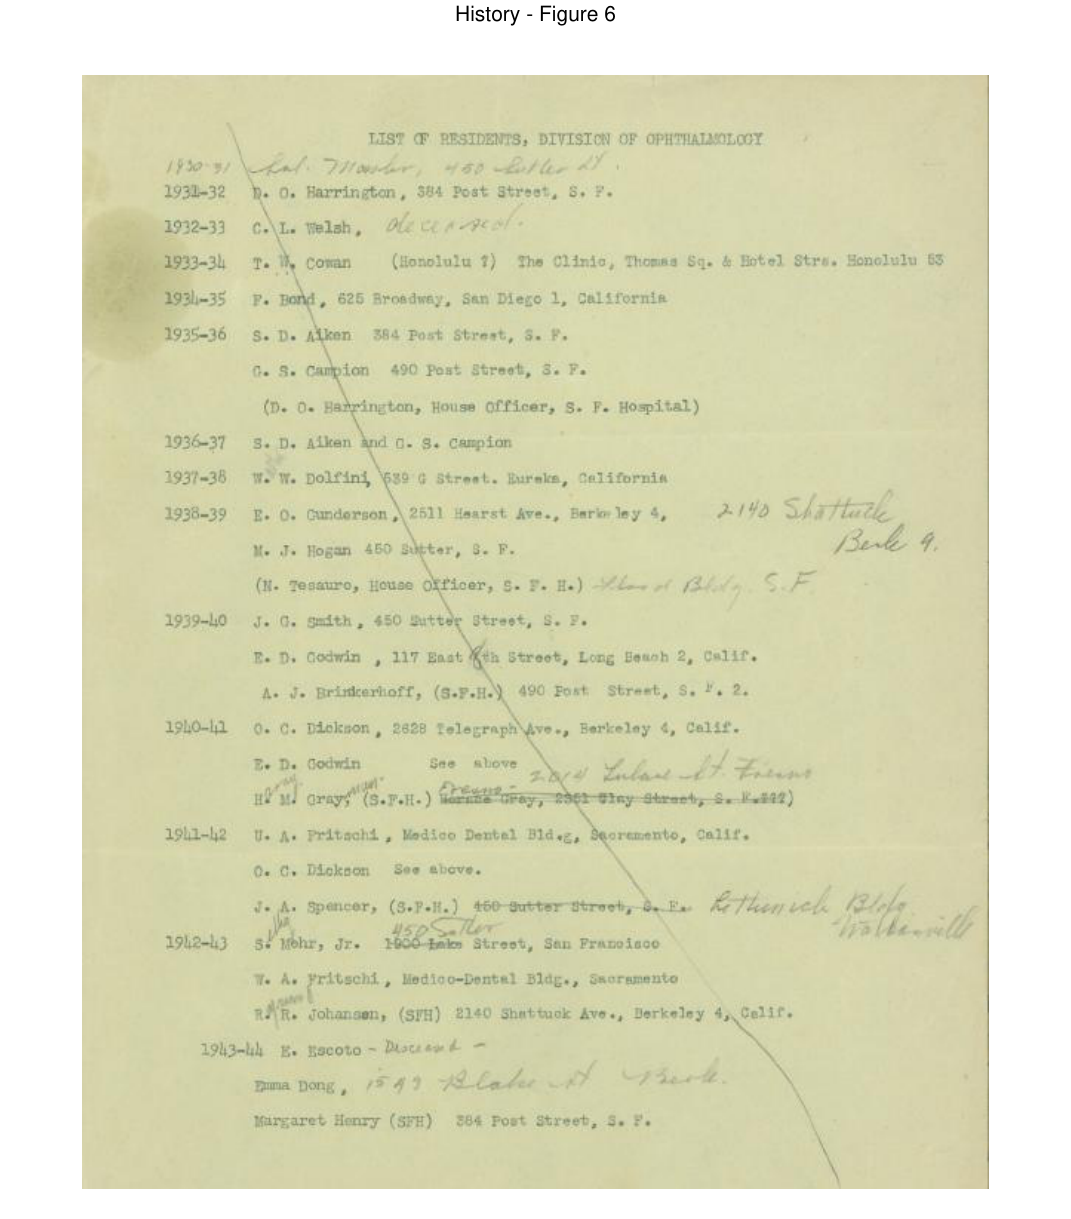 History - Figure 6
LIST OF RESIDENTS, DIVISION OF OPHTHALMOLOGY
1930-31 450 Sutter St.
1931-32 D. O. Harrington, 384 Post Street, S. F.
1932-33 C. L. Welsh, deceased.
1933-34 T. W. Cowan (Honolulu ?) The Clinic, Thomas Sq. & Hotel Strs. Honolulu 53
1934-35 F. Bond, 625 Broadway, San Diego 1, California
1935-36 S. D. Aiken 384 Post Street, S. F.
G. S. Campion 490 Post Street, S. F.
(D. O. Harrington, House Officer, S. F. Hospital)
1936-37 S. D. Aiken and G. S. Campion
1937-38 W. W. Dolfini, 539 G Street. Eureka, California
1938-39 E. O. Gunderson, 2511 Hearst Ave., Berkeley 4, 2140 Shattuck
Berk 9.
M. J. Hogan 450 Sutter, S. F.
(N. Tesauro, House Officer, S. F. H.) Bldg. S.F.
1939-40 J. G. Smith, 450 Sutter Street, S. F.
E. D. Godwin , 117 East 8th Street, Long Beach 2, Calif.
A. J. Brinkerhoff, (S.F.H.) 490 Post Street, S. F. 2.
1940-41 O. C. Dickson , 2628 Telegraph Ave., Berkeley 4, Calif.
E. D. Godwin See above
2014 St. Fresno
H. M. Gray, (S.F.H.) Gray, 2351 Clay Street, S. F.???)
1941-42 U. A. Fritschi , Medico Dental Bld.g, Sacramento, Calif.
O. C. Dickson See above.
J. A. Spencer, (S.F.H.) 450 Sutter Street, S. F. Lettunich Bldg
Watsonville
450 Sutter
1942-43 S. Mehr, Jr. 1900 Lake Street, San Francisco
W. A. Fritschi , Medico-Dental Bldg., Sacramento
R. R. Johansen, (SFH) 2140 Shattuck Ave., Berkeley 4, Calif.
1943-44 E. Escoto - Deceased -
Emma Dong , Blake St Berk.
Margaret Henry (SFH) 384 Post Street, S. F.